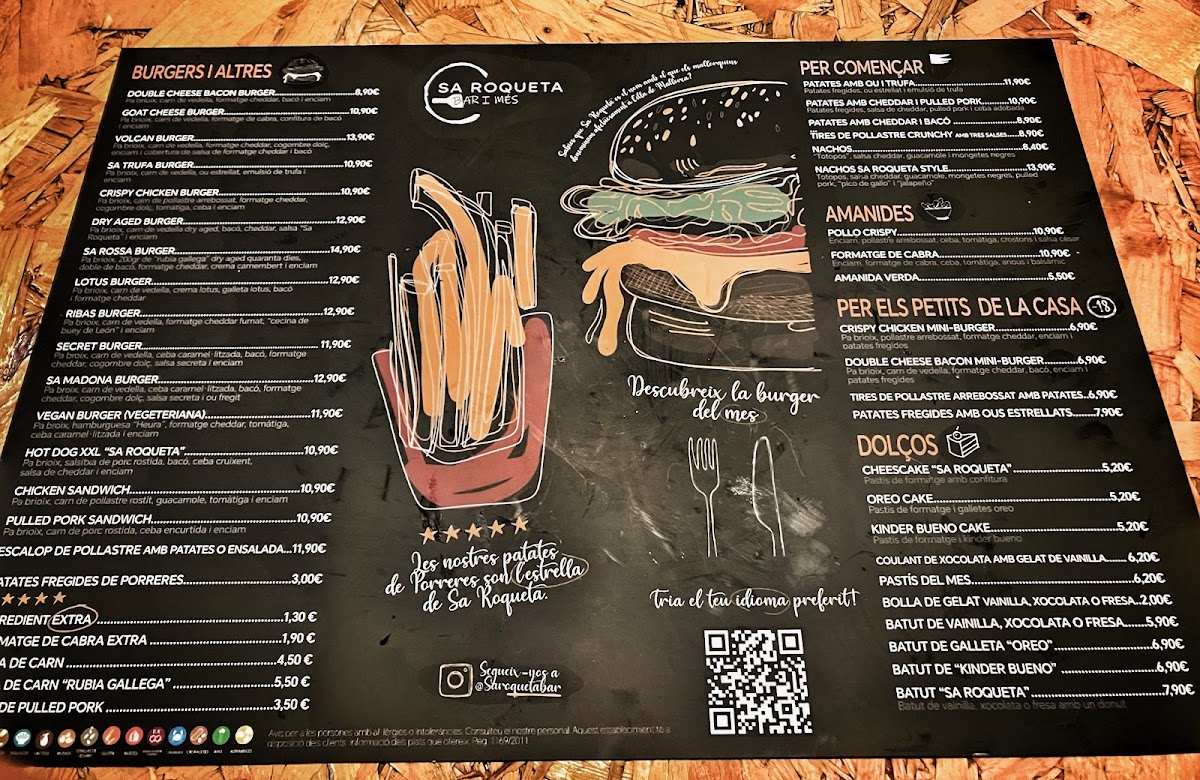 BURGERS I ALTRES
DOUBLE CHEESE BACON BURGER 8,90€
Pa brioix, carn de vedella, formatge cheddar, bacó i enciam
GOAT CHEESE BURGER 10,90€
Pa brioix, carn de vedella, formatge de cabra, confitura de bacó
i enciam
VOLCAN BURGER 13,90€
Pa brioix, carn de vedella, formatge cheddar, cogombre dolç,
enciam i cobertura de salsa de formatge cheddar i bacó
SA TRUFA BURGER 10,90€
Pa brioix, carn de vedella, ou estrellat, emulsió de trufa i
enciam
CRISPY CHICKEN BURGER 10,90€
Pa brioix, carn de pollastre arrebossat, formatge cheddar,
cogombre dolç, tomàtiga, ceba i enciam
DRY AGED BURGER 12,90€
Pa brioix, carn de vedella dry aged, bacó, cheddar, salsa "Sa
Roqueta" i enciam
SA ROSSA BURGER 14,90€
Pa brioix, 200gr de "rubia gallega" dry aged quaranta dies,
doble de bacó, formatge cheddar, crema camembert i enciam
LOTUS BURGER 12,90€
Pa brioix, carn de vedella, crema lotus, galleta lotus, bacó
i formatge cheddar
RIBAS BURGER 12,90€
Pa brioix, carn de vedella, formatge cheddar fumat, "cecina de
buey de León" i enciam
SECRET BURGER 11,90€
Pa brioix, carn de vedella, ceba caramel·litzada, bacó, formatge
cheddar, cogombre dolç, salsa secreta i enciam
SA MADONA BURGER 12,90€
Pa brioix, carn de vedella, ceba caramel·litzada, bacó, formatge
cheddar, cogombre dolç, salsa secreta i ou fregit
VEGAN BURGER (VEGETERIANA) 11,90€
Pa brioix, hamburguesa "Heura", formatge cheddar, tomàtiga,
ceba caramel·litzada i enciam
HOT DOG XXL "SA ROQUETA" 10,90€
Pa brioix, salsitxa de porc rostida, bacó, ceba cruixent,
salsa de cheddar i enciam
CHICKEN SANDWICH 10,90€
Pa brioix, carn de pollastre rostit, guacamole, tomàtiga i enciam
PULLED PORK SANDWICH 10,90€
Pa brioix, carn de porc rostida, ceba encurtida i enciam
ESCALOP DE POLLASTRE AMB PATATES O ENSALADA...11,90€
ATATES FREGIDES DE PORRERES 3,00€
REDIENT EXTRA 1,30 €
MATGE DE CABRA EXTRA 1,90 €
A DE CARN 4,50 €
DE CARN "RUBIA GALLEGA" 5,50 €
DE PULLED PORK 3,50 €
SA ROQUETA
BAR I MÉS
Les nostres patates
de Porreres son l'estrella
de Sa Roqueta.
Segueix-nos a
@Saroquetabar
Descubreix la burger
del mes
Tria el teu idioma preferit!
PER COMENÇAR
PATATES AMB OU I TRUFA 11,90€
Patates fregides, ou estrellat i emulsió de trufa
PATATES AMB CHEDDAR I PULLED PORK 10,90€
Patates fregides, salsa de cheddar, pulled pork i ceba adobada
PATATES AMB CHEDDAR I BACÓ 8,90€
TIRES DE POLLASTRE CRUNCHY AMB TRES SALSES 8,90€
NACHOS 8,40€
"Totopos", salsa cheddar, guacamole i mongetes negres
NACHOS SA ROQUETA STYLE 13,90€
Totopos, salsa cheddar, guacamole, mongetes negres, pulled
pork, "pico de gallo" i "jalapeño"
AMANIDES
POLLO CRISPY 10,90€
Enciam, pollastre arrebossat, ceba, tomàtiga, crostons i salsa cèsar
FORMATGE DE CABRA 10,90€
Enciam, formatge de cabra, ceba, tomàtiga, anous i balsàmic
AMANIDA VERDA 5,50€
PER ELS PETITS DE LA CASA -13
CRISPY CHICKEN MINI-BURGER 6,90€
Pa brioix, pollastre arrebossat, formatge cheddar, enciam i
patates fregides
DOUBLE CHEESE BACON MINI-BURGER 6,90€
Pa brioix, carn de vedella, formatge cheddar, bacó, enciam i
patates fregides
TIRES DE POLLASTRE ARREBOSSAT AMB PATATES..6,90€
PATATES FREGIDES AMB OUS ESTRELLATS 7,90€
DOLÇOS
CHEESCAKE "SA ROQUETA" 5,20€
Pastís de formatge amb confitura
OREO CAKE 5,20€
Pastís de formatge i galletes oreo
KINDER BUENO CAKE 5,20€
Pastís de formatge i kinder bueno
COULANT DE XOCOLATA AMB GELAT DE VAINILLA 6,20€
PASTÍS DEL MES 6,20€
BOLLA DE GELAT VAINILLA, XOCOLATA O FRESA..2,00€
BATUT DE VAINILLA, XOCOLATA O FRESA 5,90€
BATUT DE GALLETA "OREO" 6,90€
BATUT DE "KINDER BUENO" 6,90€
BATUT "SA ROQUETA" 7,90€
Batut de vainilla, xocolata o fresa amb un donut
Avis per a les persones amb al·lèrgies o intoleràncies. Consulteu el nostre personal. Aquest establiment té a
disposició dels clients informació dels plats que ofereix. Reg. 1169/2011